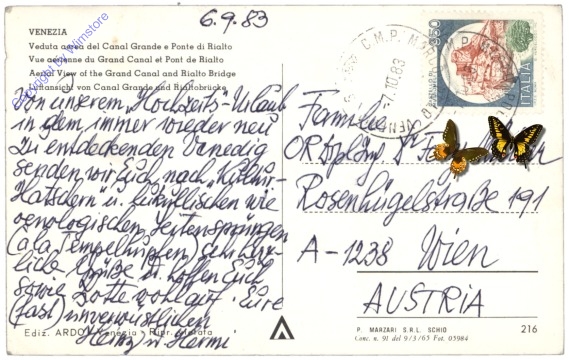 6.9.83
VENEZIA
Veduta aerea del Canal Grande e Ponte di Rialto
Vue aerienne du Grand Canal et Pont de Rialto
Aerial View of the Grand Canal and Rialto Bridge
Luftansicht von Canal Grande und Rialtobrücke
Copyright by Wimstore
Von unserem "Hochzeits"-Urlaub
in dem immer wieder neu
zu entdeckenden Venedig
senden wir Euch nach "Kultur-
Hatschern" u. lukullischen wie
oenologischen Seitensprüngen
(a la Tempelhüpfen) sehr herz-
liche Grüße u. hoffen Euch
sowie Lotte wohlauf. Eure
(fast) unverwüstlichen
Heinz u. Hermi
Ediz. ARDO - Venezia - Ripr. Vietata
C.M.P.
10.83
350
ITALIA
Familie
Rosenhügelstraße 191
A-1238 Wien
AUSTRIA
P. MARZARI S.R.L. SCHIO
Conc. n. 91 del 9/3/65 Fot. 05984
216